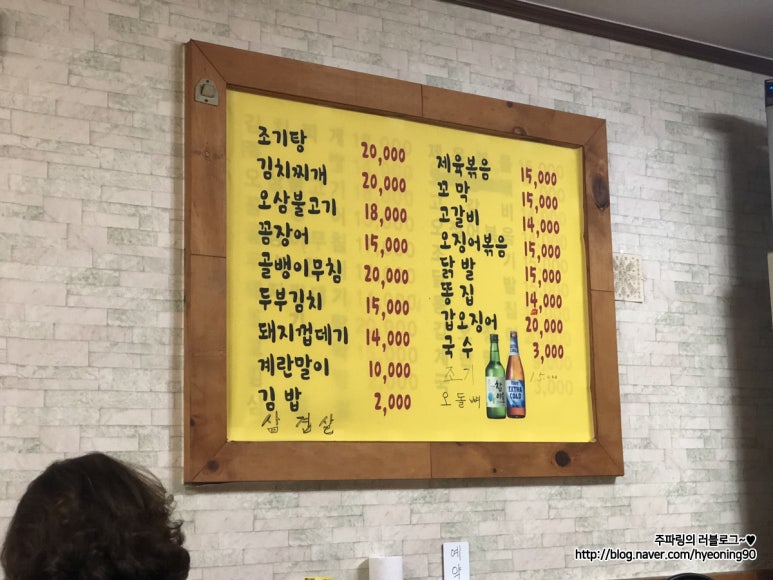 조기탕 20,000
김치찌개 20,000
오삼불고기 18,000
꼼장어 15,000
골뱅이무침 20,000
두부김치 15,000
돼지껍데기 14,000
계란말이 10,000
김밥 2,000
삼겹살
제육볶음 15,000
꼬막 15,000
고갈비 14,000
오징어볶음 15,000
닭발 15,000
똥집 14,000
갑오징어 20,000
국수 3,000
조기
오돌뼈
EXTRA
COLD
예약
주파링의 러블로그~♥
http://blog.naver.com/hyeoning90